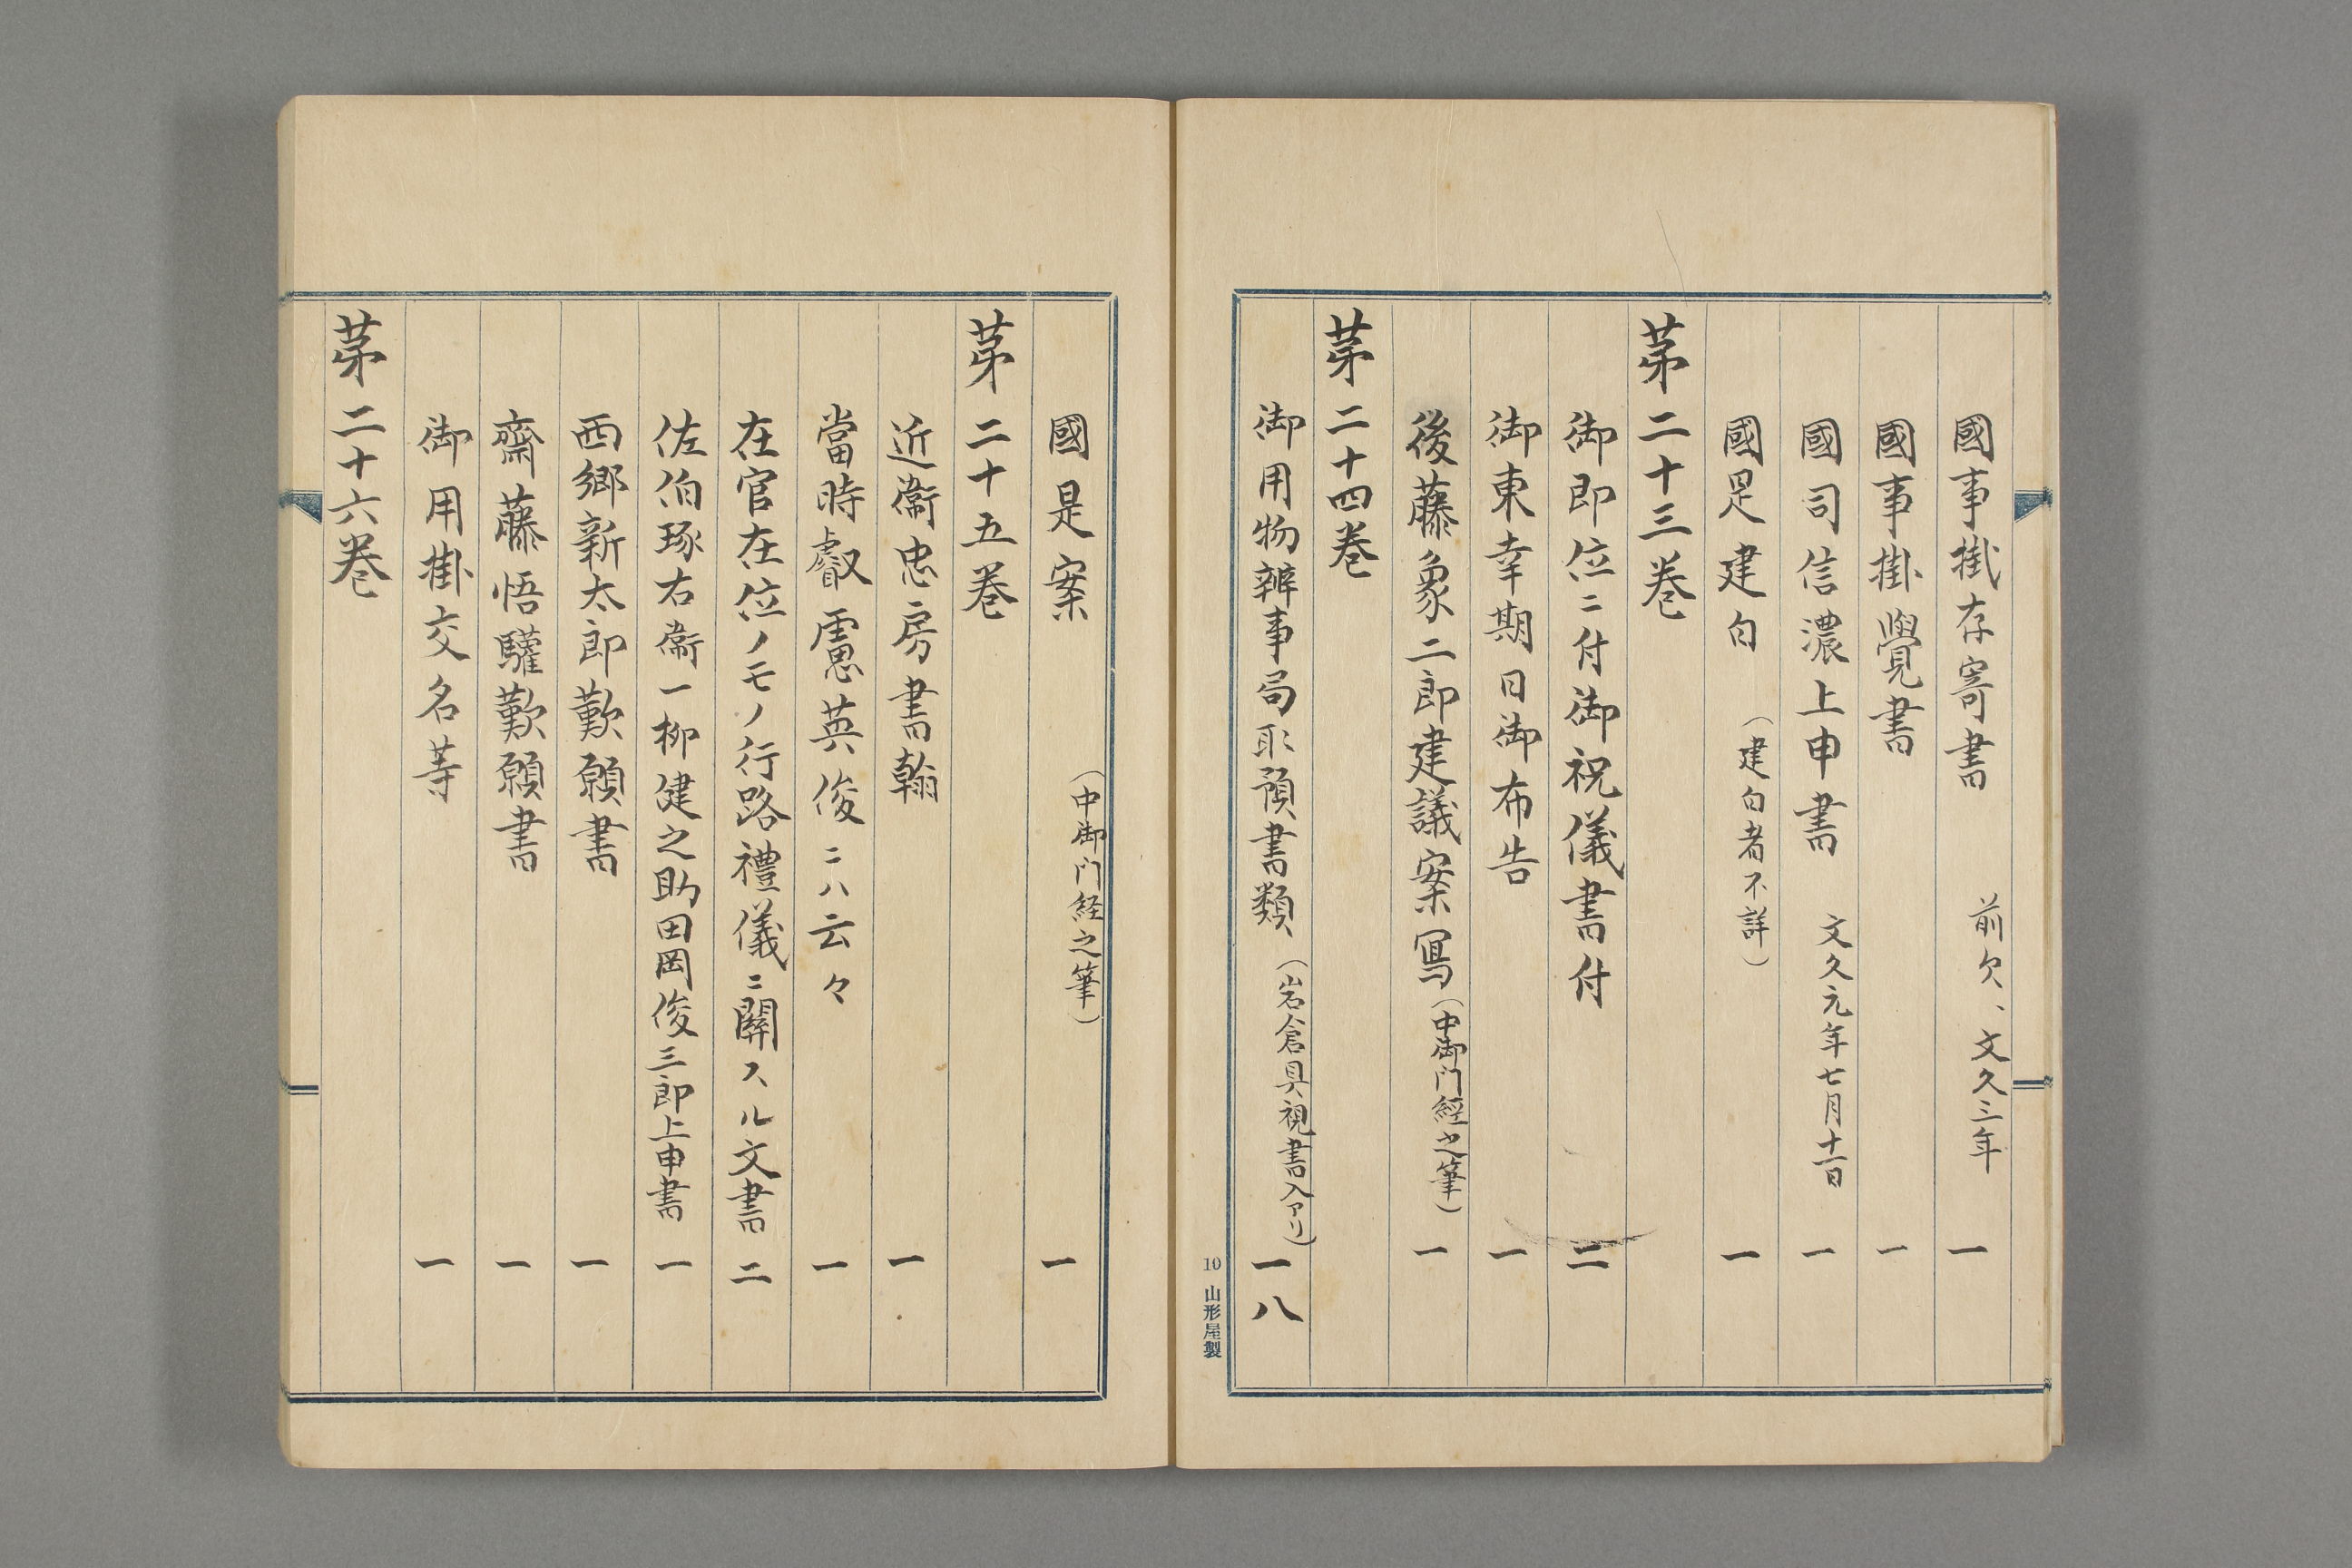 國事掛存寄書 前欠、文久三年 一
國事掛覺書 一
國司信濃上申書 文久元年七月十一日 一
國是建白 (建白者不詳) 一
第二十三巻
御即位ニ付御祝儀書付 二
御東幸期日御布告 一
後藤象二郎建議案寫 (中御門經之筆) 一
第二十四巻
御用物辨事局取預書類 (岩倉具視書入アリ) 一八
10 山形屋製
國是案 (中御門経之筆) 一
第二十五巻
近衞忠房書翰 一
當時叡慮英俊ニハ云々 一
在官在位ノモノ行路禮儀ニ關スル文書 二
佐伯琢右衞一柳健之助田岡俊三郎上申書 一
西郷新太郎歎願書 一
齋藤悟驩歎願書 一
御用掛交名等 一
第二十六巻